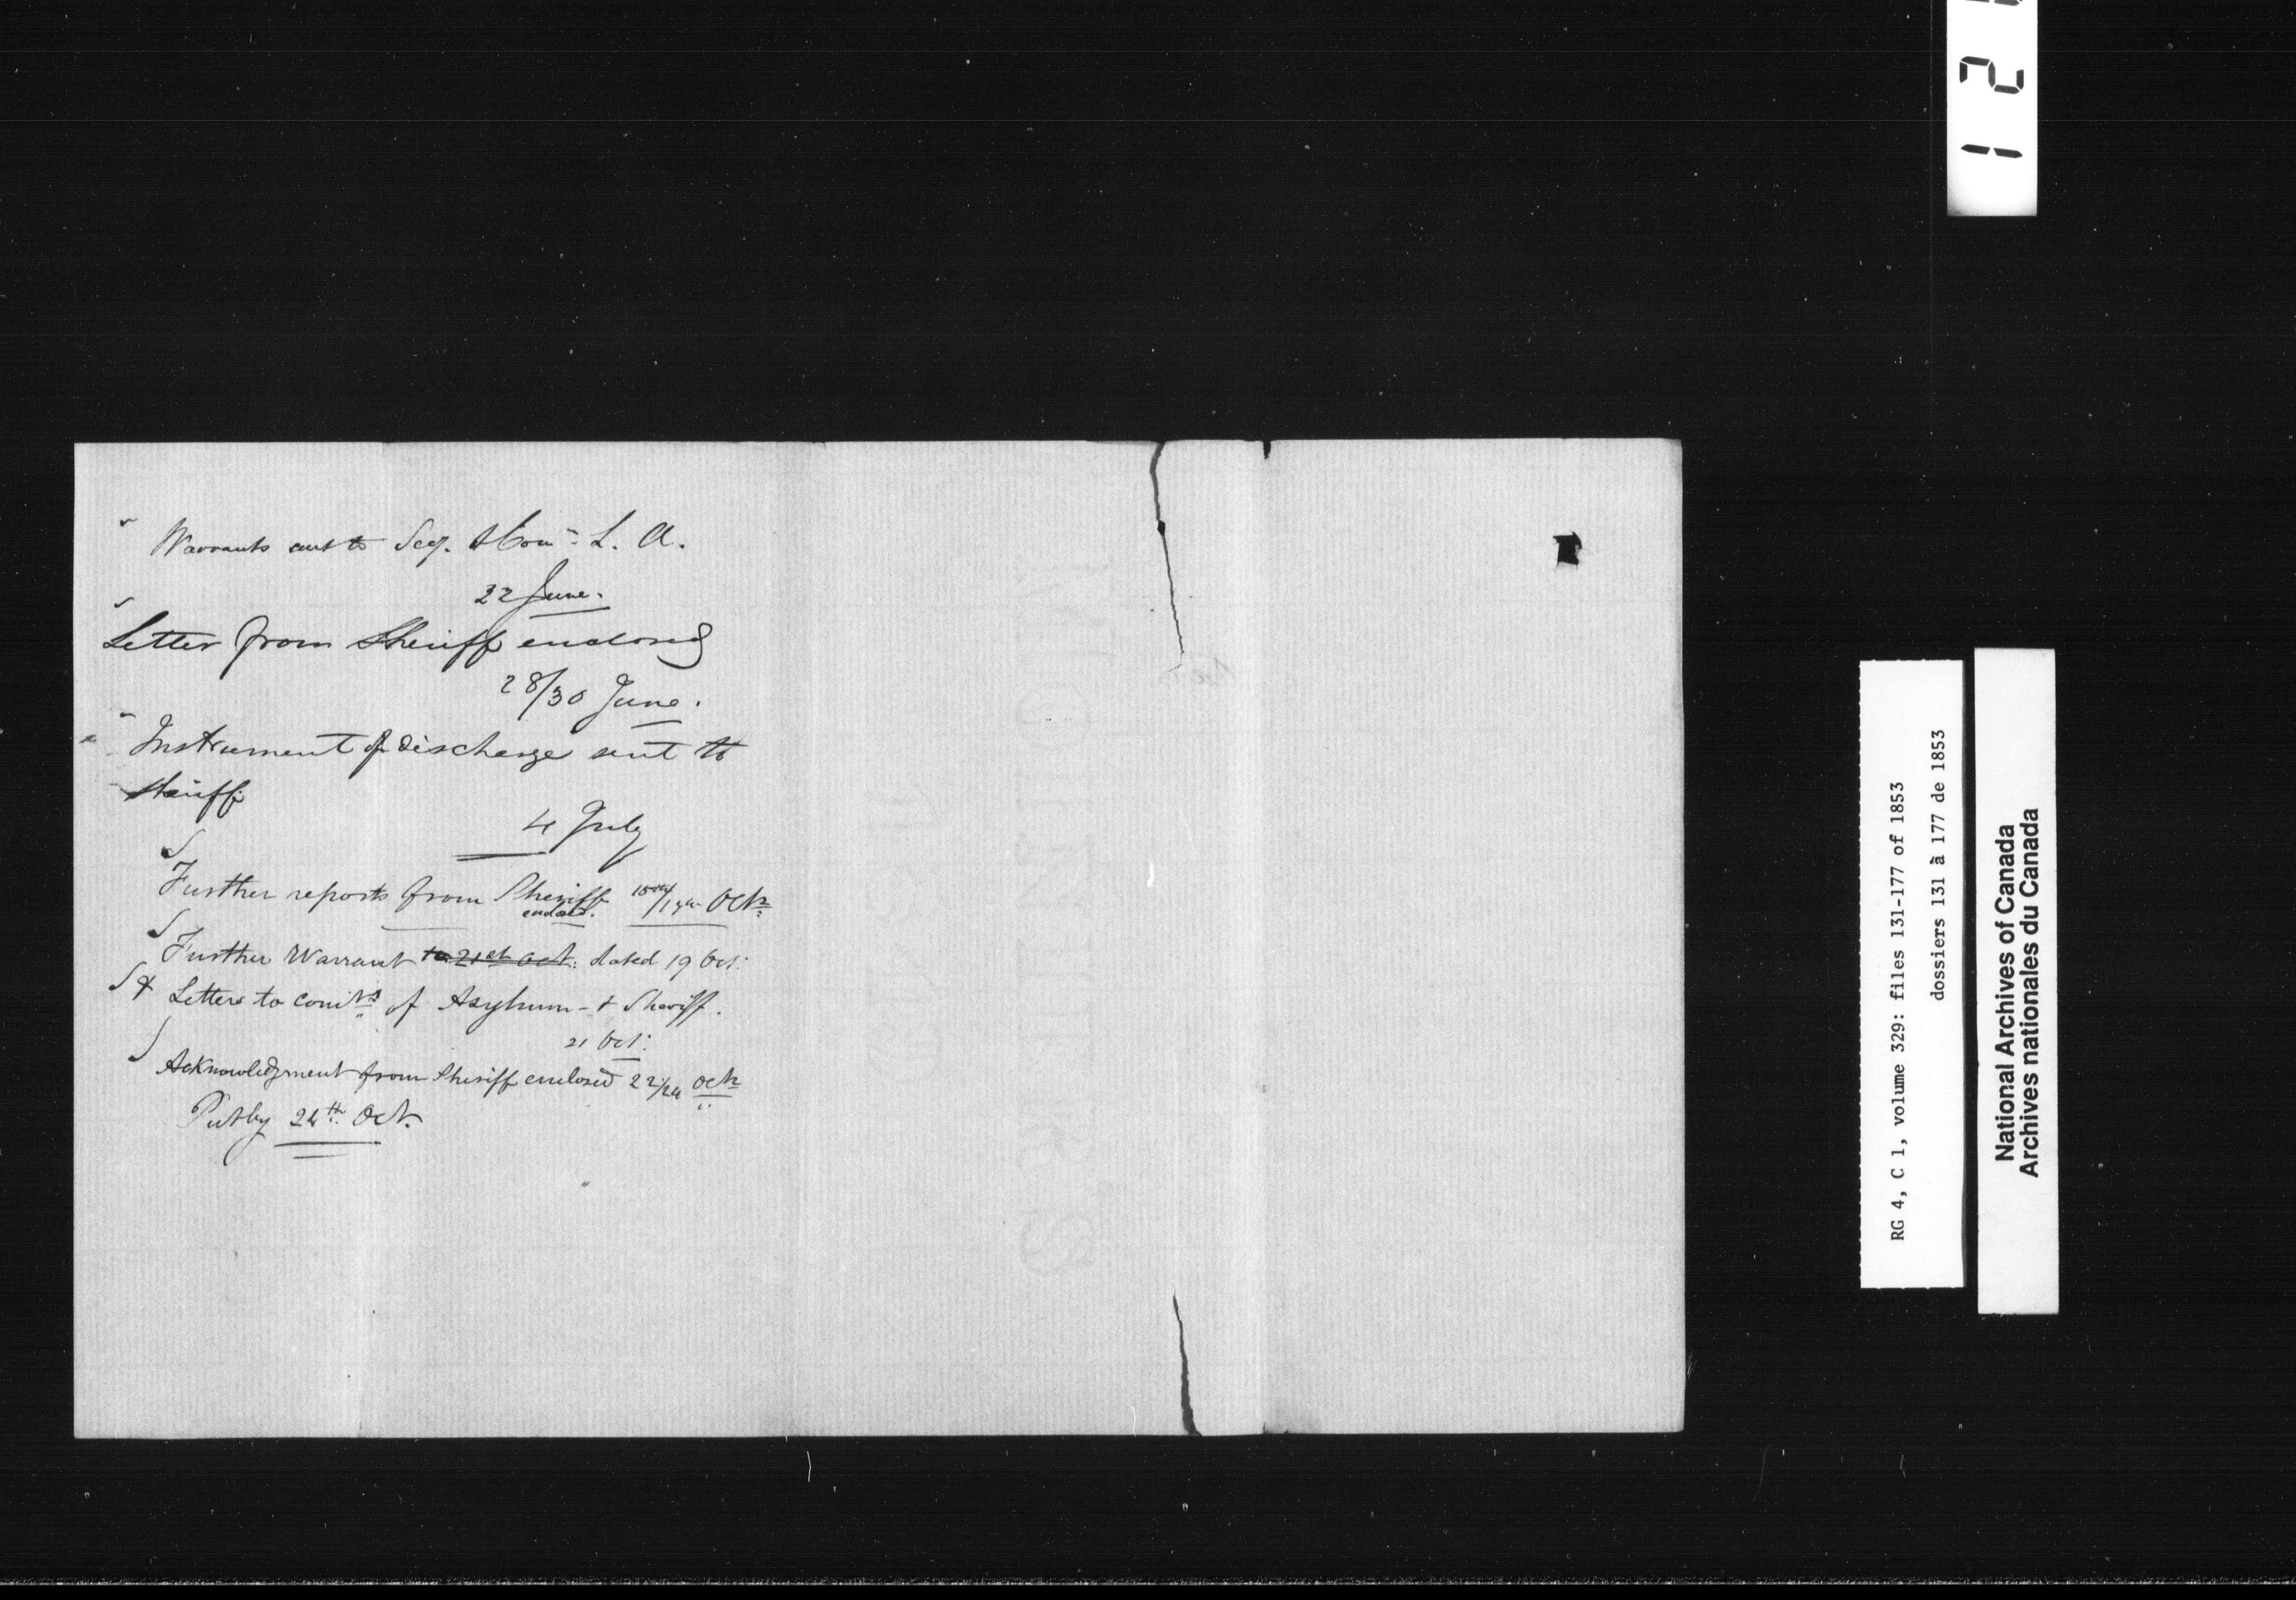 Warrants sent to Secy. & Com<sup>rs</sup> L. A.
22 June.
Letter from Sheriff enclosed
28/30 June.
Instrument of discharge sent to
Sheriff
4 July
Further reports from Sheriff 15th/17th Octr
enclosed.
Further Warrant to 21st Oct: dated 19 Oct:
& Letters to comrs of Asylum - & Sheriff.
21 Oct:
Acknowledgment from Sheriff enclosed 22/24 Octr
Put by 24th Oct.
RG 4, C 1, volume 329: files 131-177 of 1853
dossiers 131 à 177 de 1853
National Archives of Canada
Archives nationales du Canada
1 2